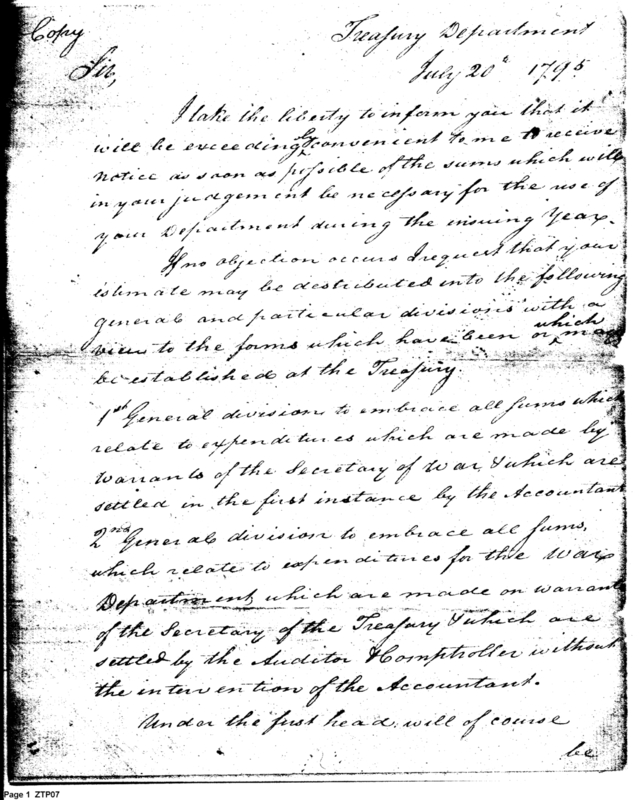 Copy
Treasury Department
Sir,
July 20th 1795
I take the liberty to inform you that it
will be exceedingly convenient to me to receive
notice as soon as possible of the sums which will
in your judgement be necessary for the use of
your Department during the insuing Year.
If no objection occurs I request that your
estimate may be destributed into the following
general and particular divisions with a
view to the forms which have been or which may
be established at the Treasury.
1st General divisions to embrace all sums which
relate to expenditures which are made by
Warrants of the Secretary of War & which are
settled in the first instance by the Accountant
2nd General division to embrace all sums,
which relate to expenditures for the War
Department which are made on warrants
of the Secretary of the Treasury & which are
settled by the Auditor & Comptroller without
the intervention of the Accountant.
Under the first head will of course
be
Page 1 ZTP07